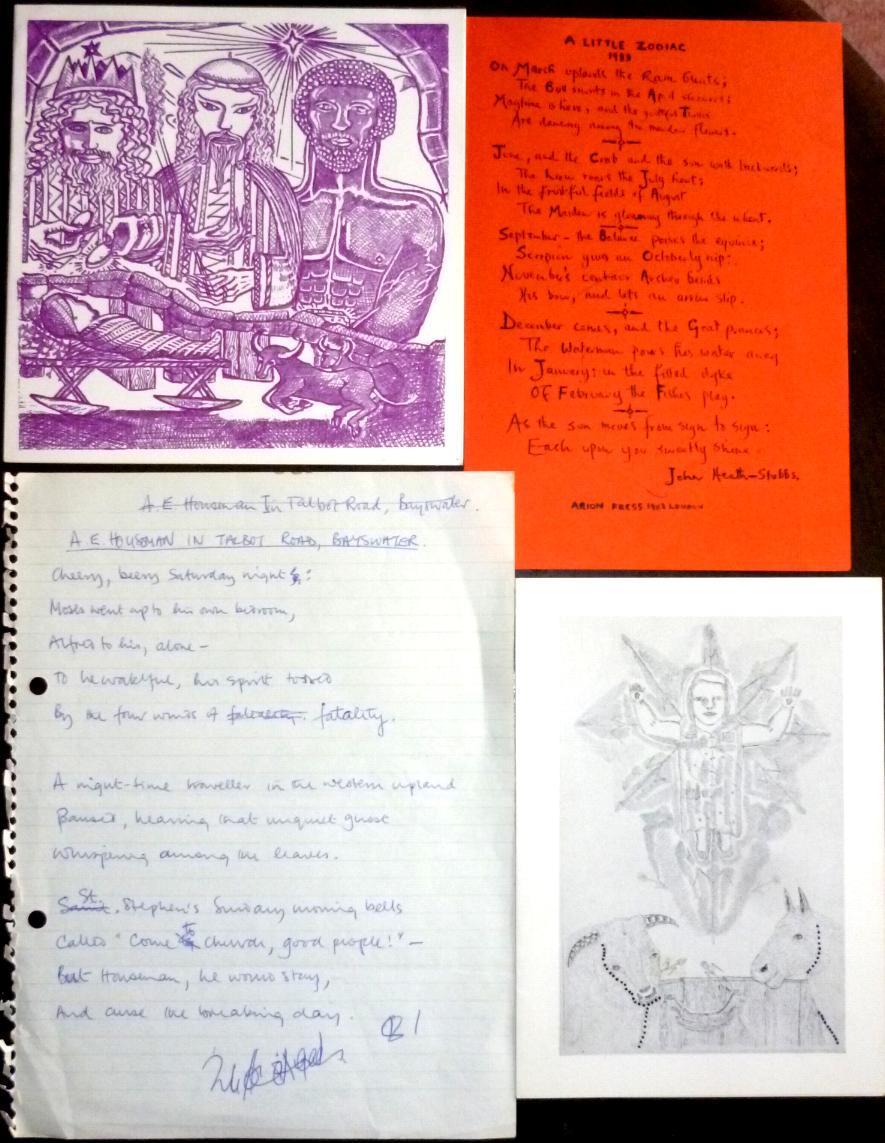 A LITTLE ZODIAC
1983
On March uplands the Ram
The Bull snorts in the April showers;
Maytime is here, and the Twins
Are dancing among the meadow flowers.
June, and the Crab and the sun walk backwards;
The Lion roars the July heat;
In the fruitful fields of August
The Maiden is gleaming through the wheat.
September - the Balance poises the equinox;
Scorpion gives an Octoberly nip:
November's centaur Archer bends
His bow, and lets an arrow slip.
December comes, and the Goat prances;
The Waterman pours his water away
In January: in the filled dyke
Of February the Fishes play.
As the sun moves from sign to sign:
Each upon you sweetly shine.
John Heath-Stubbs.
ARION PRESS 1983 LONDON
A. E. Housman In Talbot Road, Bayswater.
A. E. HOUSMAN IN TALBOT ROAD, BAYSWATER.
Cheery, beery Saturday night:
Moses went up to his own bedroom,
Alfred to his, alone -
To lie wakeful, his spirit tossed
By the four winds of fatality.
A night-time traveller in the western upland
Paused, hearing that unquiet ghost
Whispering among the leaves.
St. Stephen's Sunday morning bells
Called "Come to church, good people!" -
But Housman, he would stay,
And curse the breaking day.